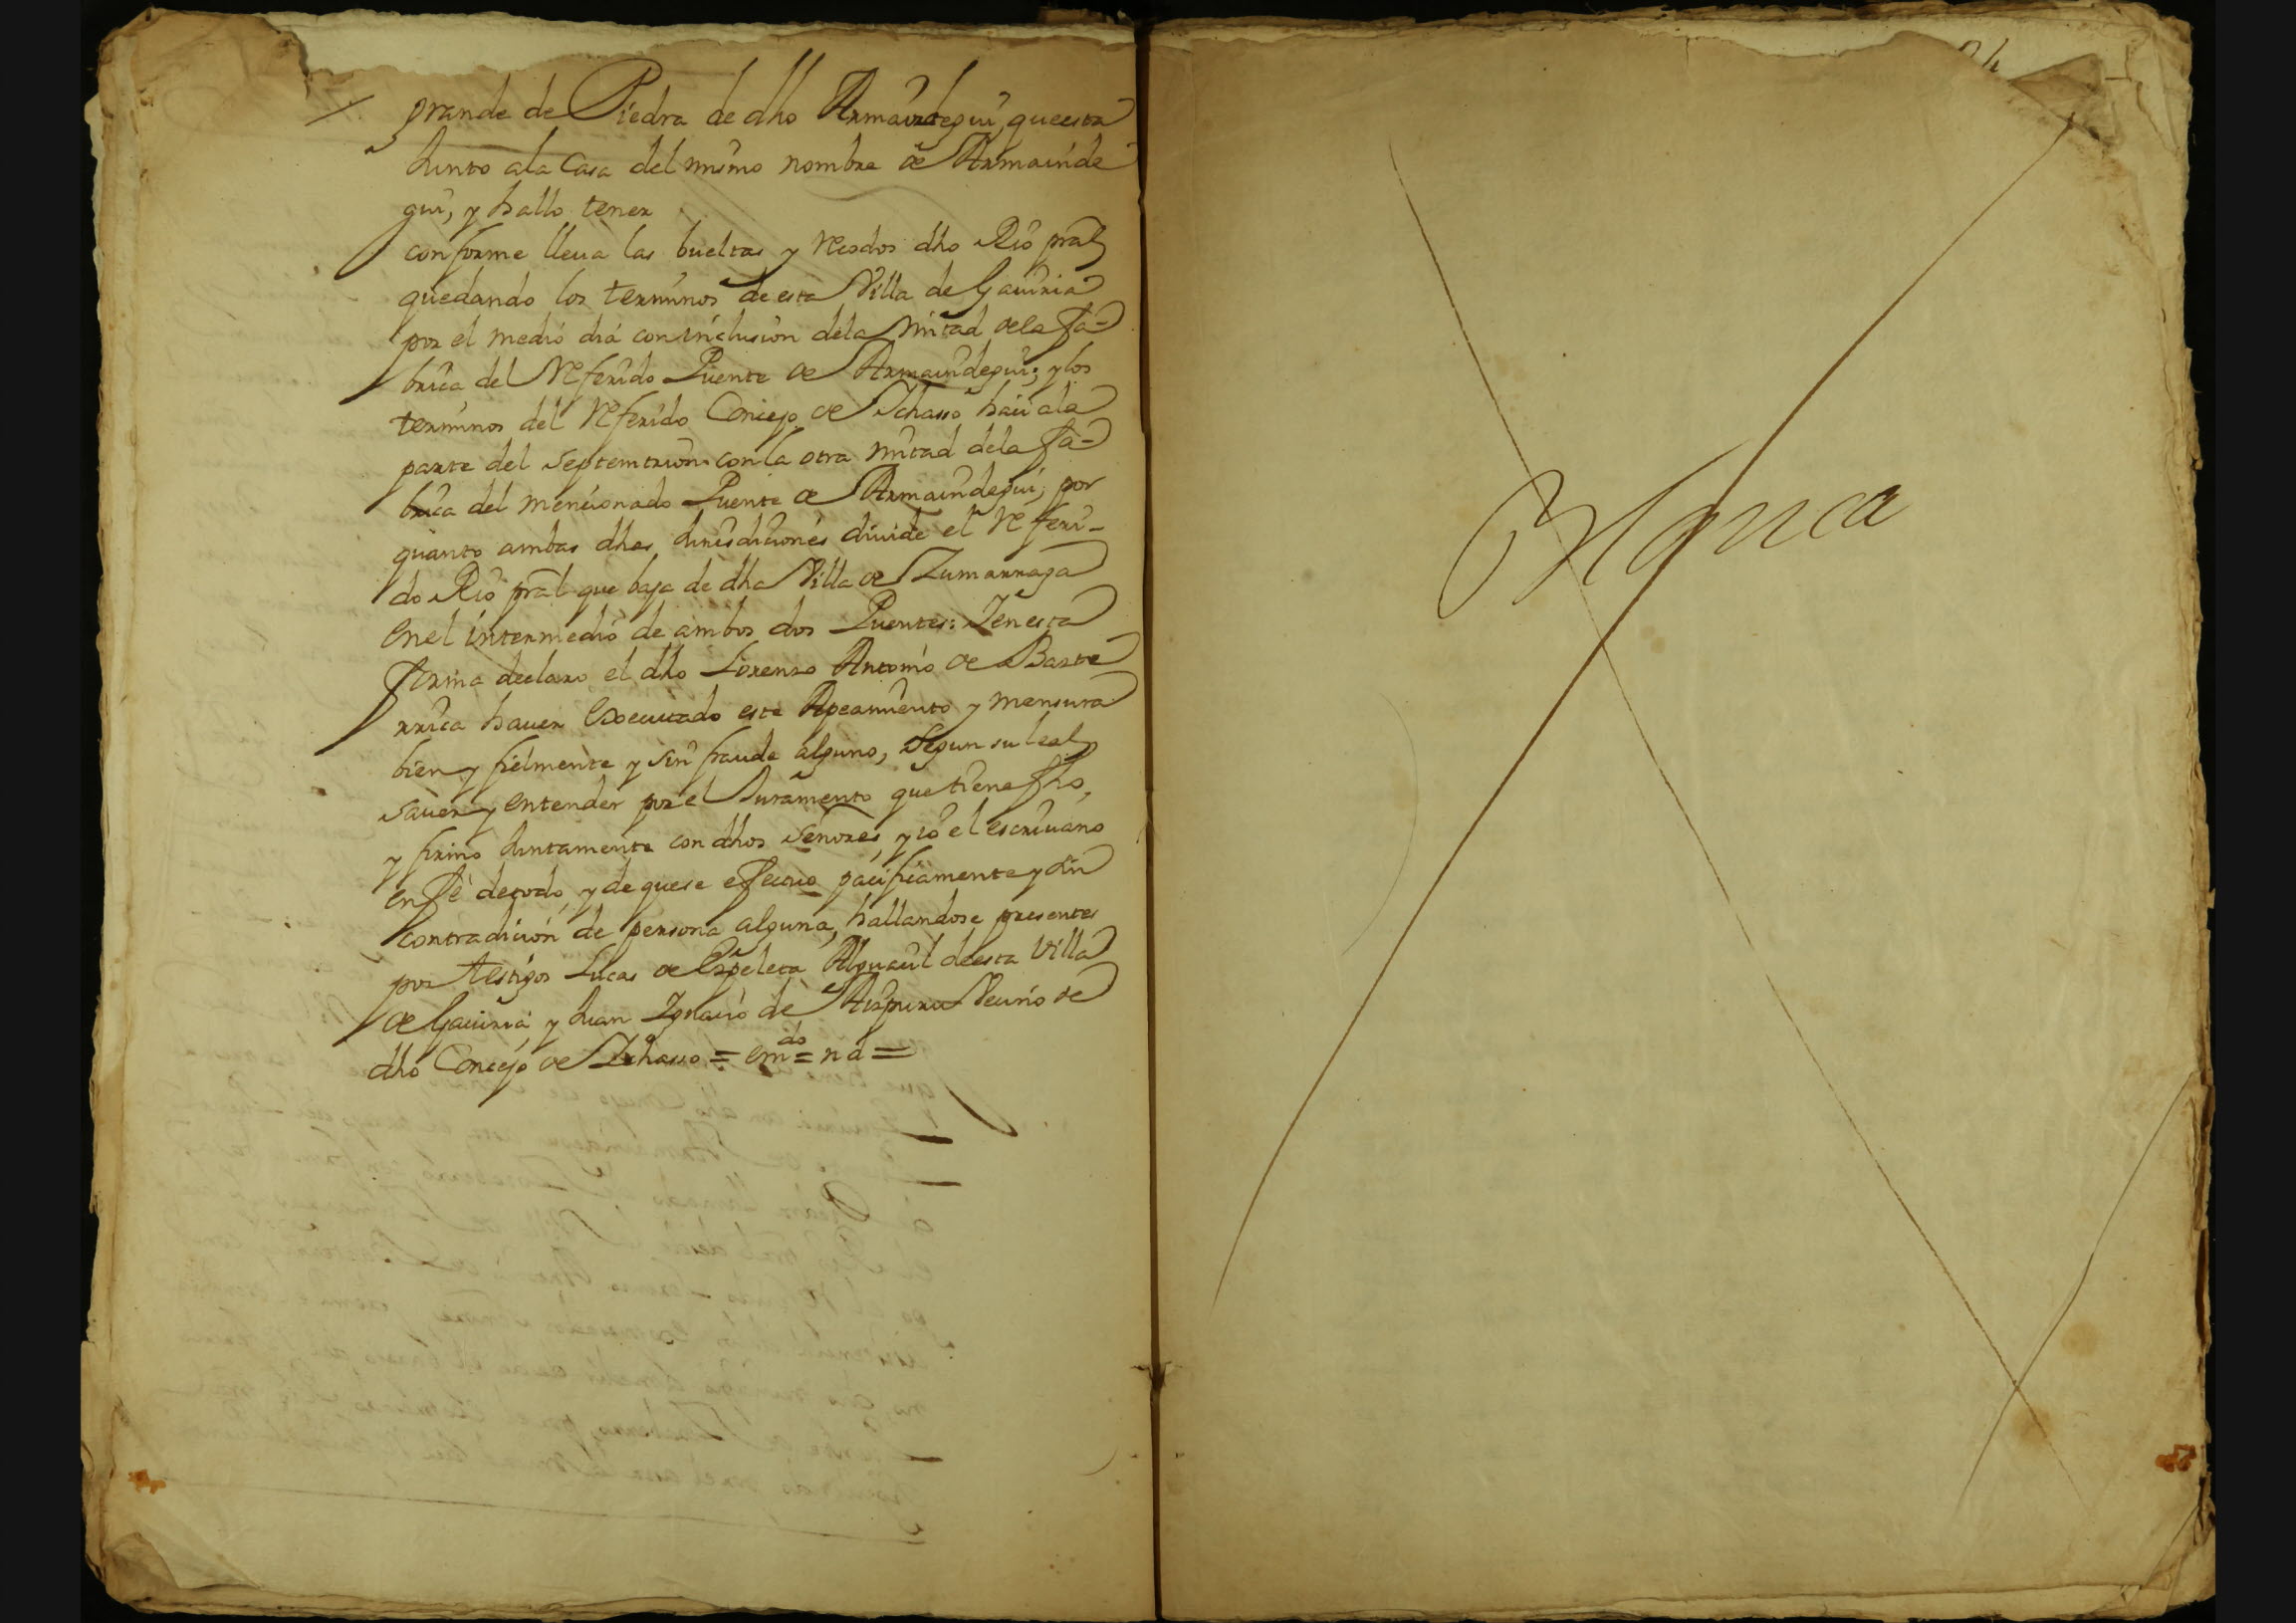 grande de Piedra de dho Armaindegui, que esta
Junto ala Casa del mismo nombre de Armainde
gui, y hallo tener
conforme lleua las bueltas y Reodos dho Rio pral
quedando los terminos de esta Villa de Gauiria
por el medio dia con inclusion dela mitad dela fa-
brica del Referido Puente de Armaindegui; y los
terminos del Referido Concejo de Ichasso hacia la
parte del septemtrion con la otra mitad dela fa-
brica del mencionado Puente de Armaindegui, por
quanto ambas dhas Jurisdiciones diuide el Referi-
do Rio pral que baja de dha Villa de Zumarraga
en el intermedio de ambos dos Puentes: Y en esta
forma declaro el dho Lorenzo Antonio de Baste
rrica hauer executado este Apeamiento y mensura
bien y fielmente y sin fraude alguno, segun su leal
sauer y entender por el Juramento que tiene fho,
y firmo Juntamente con dhos señores, y io el escriuano
en fè de todo, y de que se efectuo pacificamente y sin
contradicion de persona alguna, hallandose presentes
por testigos Lucas de Ezpeleta Alguacil de esta Villa
de Gauiria y Juan Ignacio de Aizpuru Vecino de
dho Concejo de Ichasso = em.do = na =
Blanca